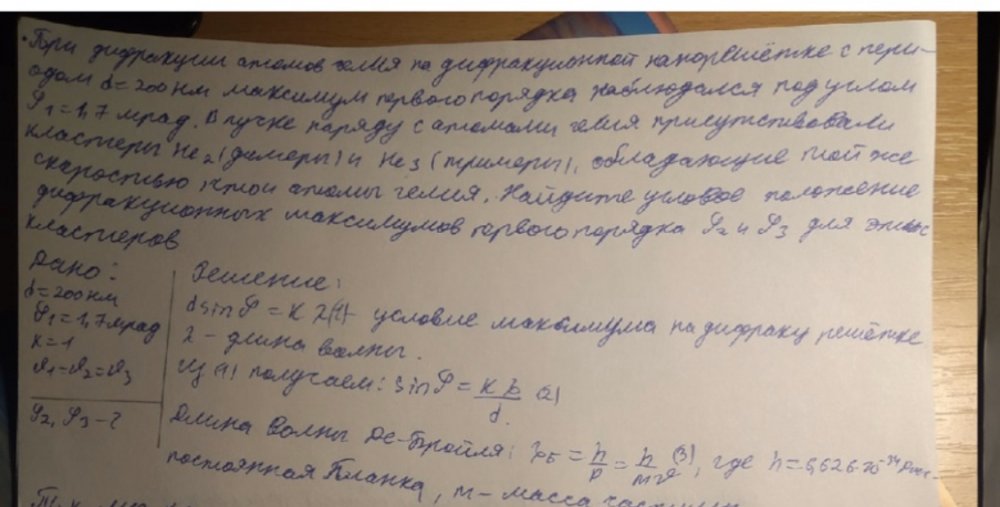 • При дифракции атомов гелия на дифракционной нанорешётке с пери-
одом d = 200 нм максимум первого порядка наблюдался под углом
φ₁ = 1,7 мрад. В пучке наряду с атомами гелия присутствовали
кластеры He₂ (димеры) и He₃ (тримеры), обладающие той же
скоростью что и атомы гелия. Найдите угловое положение
дифракционных максимумов первого порядка φ₂ и φ₃ для этих
кластеров
Дано:
d = 200 нм
φ₁ = 1,7 мрад
k = 1
υ₁ = υ₂ = υ₃
φ₂, φ₃ - ?
Решение:
d sin φ = k λ (1) - условие максимума на дифракц решётке
λ - длина волны.
Из (1) получаем: sin φ = kλ/d (2)
Длина волны Де-Бройля: λ_Б = h/p = h/mυ (3), где h = 6,626·10⁻³⁴ Дж·с -
постоянная Планка, m - масса частицы